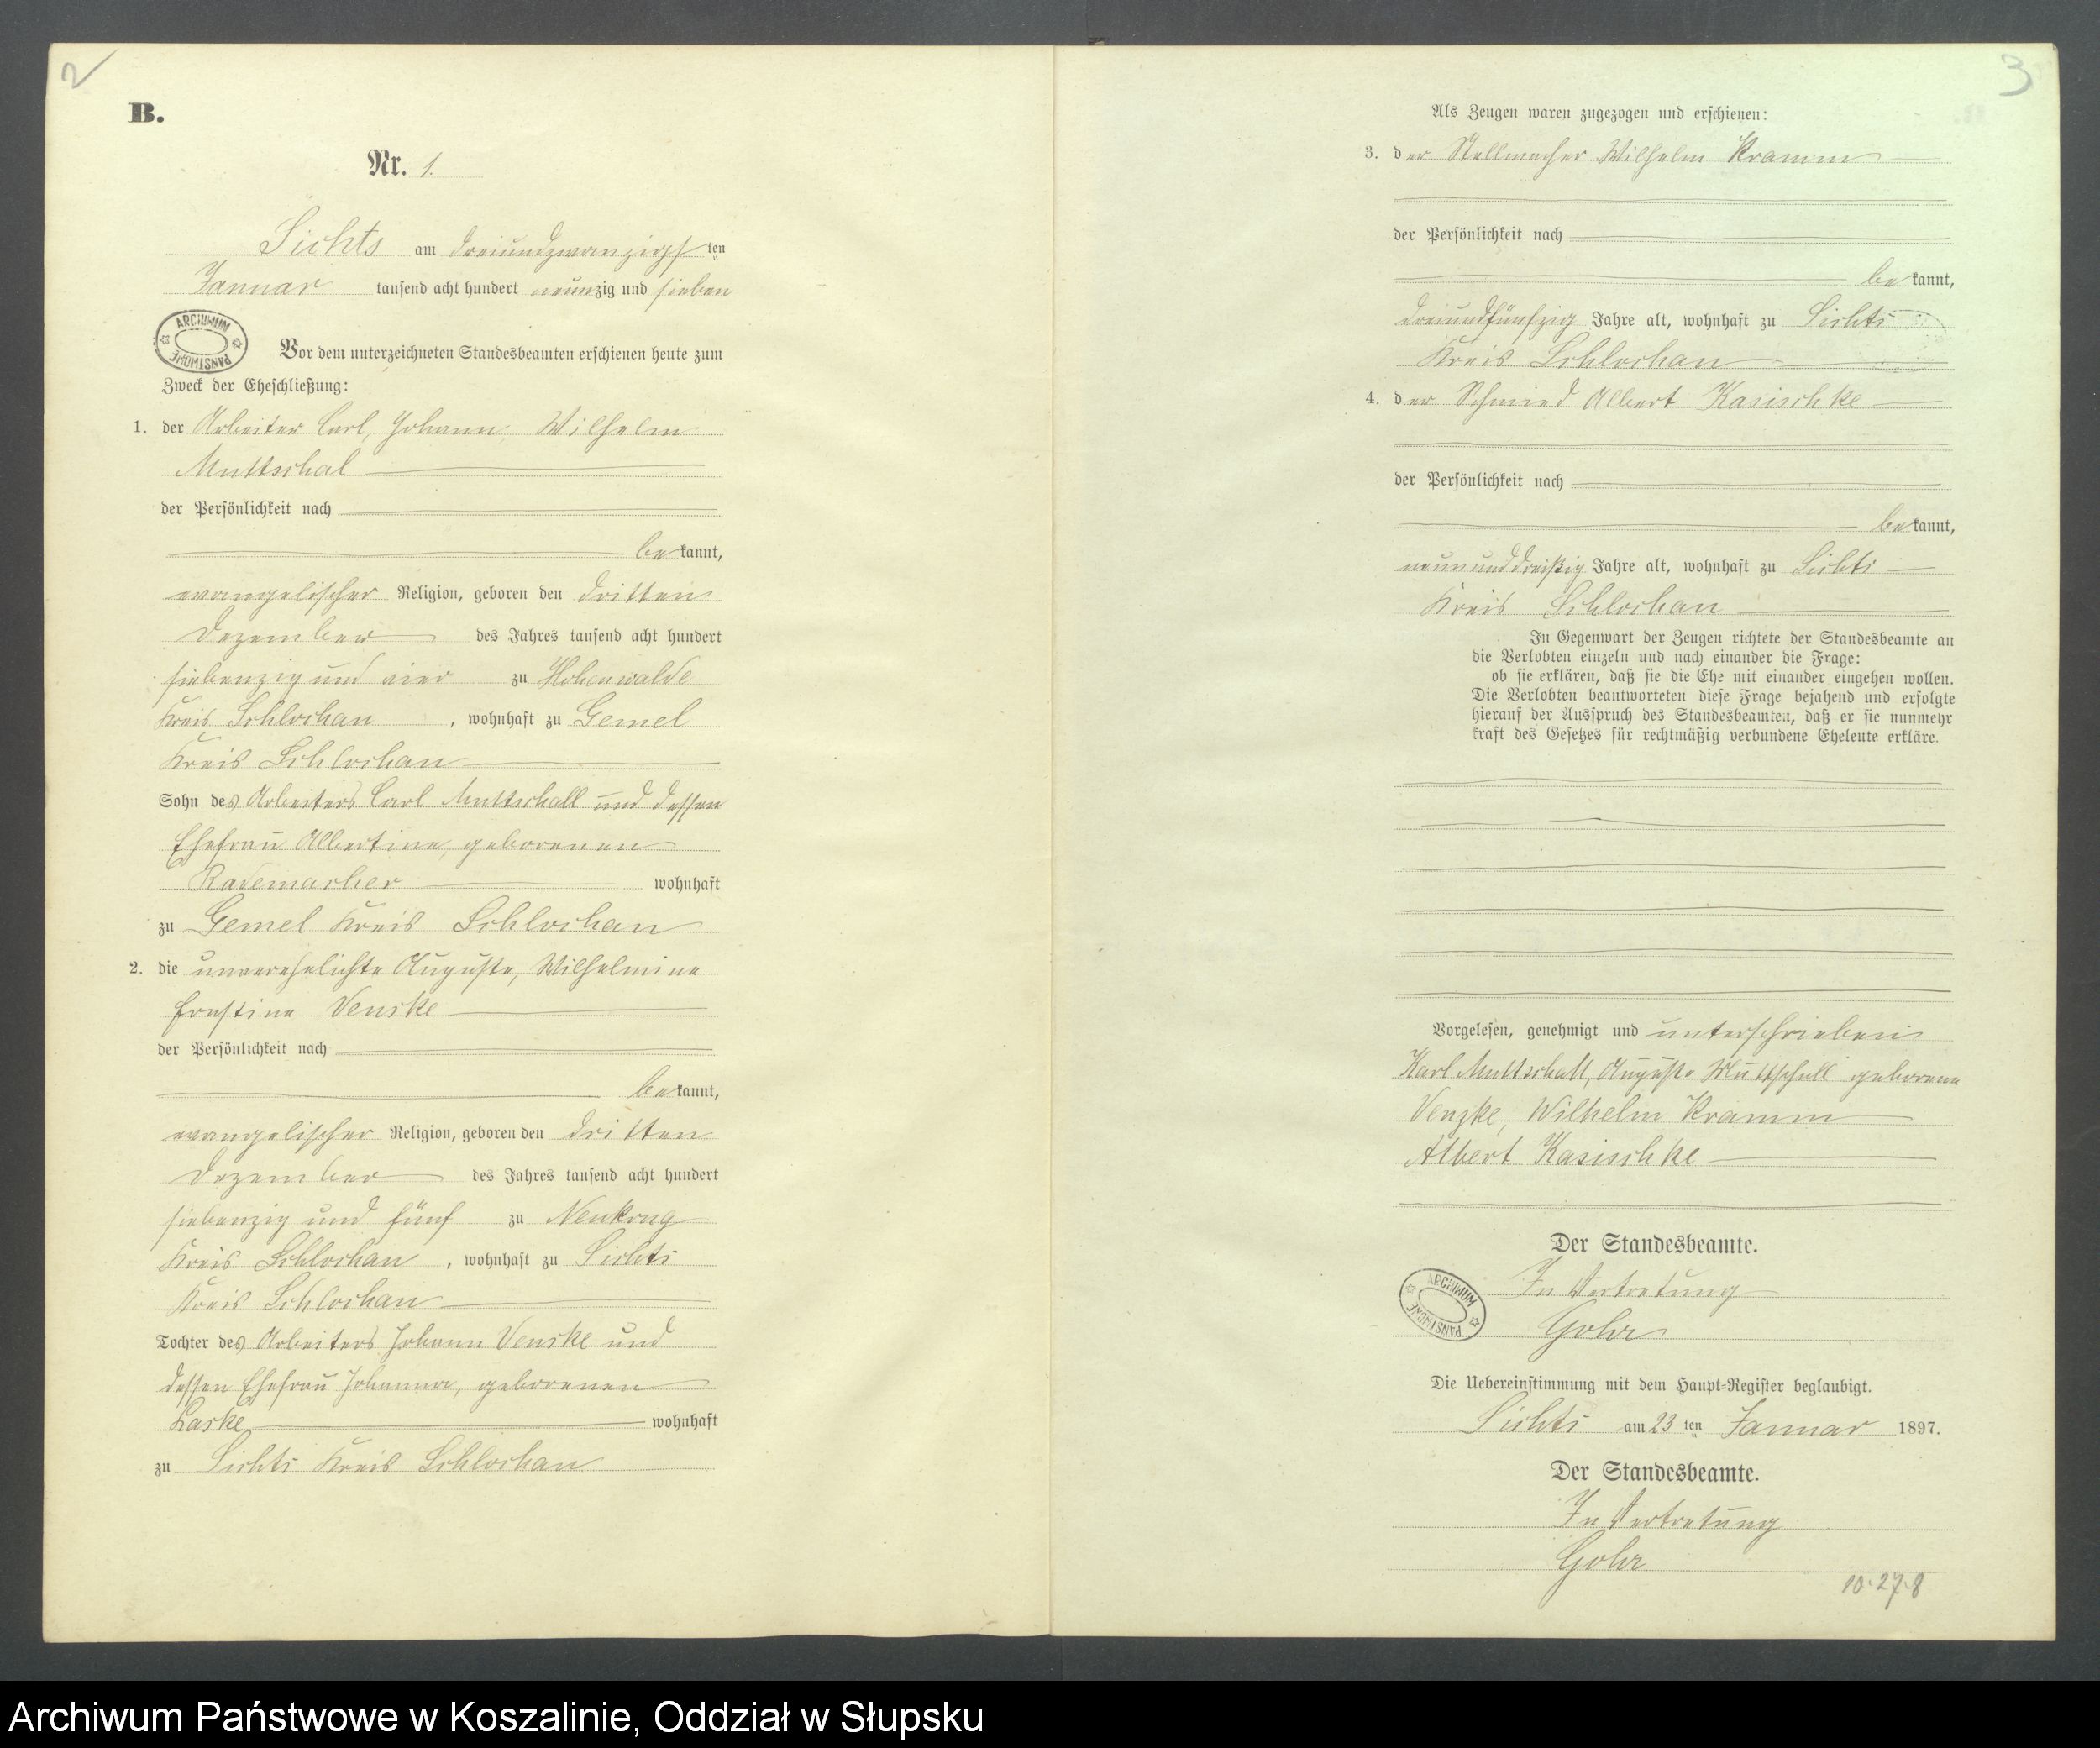 2
B.
Nr. 1.
Sichts am dreiundzwanzigsten
Januar tausend acht hundert neunzig und sieben
ARCHIWUM PAŃSTWOWE
Vor dem unterzeichneten Standesbeamten erschienen heute zum
Zweck der Eheschließung:
1. der Arbeiter Carl, Johann, Wilhelm
Muttschal
der Persönlichkeit nach
bekannt,
evangelischer Religion, geboren den dritten
Dezember des Jahres tausend acht hundert
siebenzig und vier zu Hohenwalde
Kreis Schlochau, wohnhaft zu Gemel
Kreis Schlochau
Sohn des Arbeiters Carl Muttschall und dessen
Ehefrau Albertine, geborenen
Rademacher wohnhaft
zu Gemel Kreis Schlochau
2. die unverehelichte Auguste, Wilhelmine
Ernstine Venske
der Persönlichkeit nach
bekannt,
evangelischer Religion, geboren den dritten
Dezember des Jahres tausend acht hundert
siebenzig und fünf zu Neukrug
Kreis Schlochau, wohnhaft zu Sichts
Kreis Schlochau
Tochter des Arbeiters Johann Venske und
dessen Ehefrau Johanna, geborenen
Laske wohnhaft
zu Sichts Kreis Schlochau
3
Als Zeugen waren zugezogen und erschienen:
3. der Stellmacher Wilhelm Kramm
der Persönlichkeit nach
bekannt,
dreiundfünfzig Jahre alt, wohnhaft zu Sichts
Kreis Schlochau
4. der Schmied Albert Kasischke
der Persönlichkeit nach
bekannt,
neununddreißig Jahre alt, wohnhaft zu Sichts
Kreis Schlochau
In Gegenwart der Zeugen richtete der Standesbeamte an
die Verlobten einzeln und nach einander die Frage:
ob sie erklären, daß sie die Ehe mit einander eingehen wollen.
Die Verlobten beantworteten diese Frage bejahend und erfolgte
hierauf der Ausspruch des Standesbeamten, daß er sie nunmehr
kraft des Gesetzes für rechtmäßig verbundene Eheleute erkläre.
Vorgelesen, genehmigt und unterschrieben
Karl Muttschall, Auguste Muttschall geborene
Venzke, Wilhelm Kramm
Albert Kasischke
Der Standesbeamte.
In Vertretung
ARCHIWUM PAŃSTWOWE
Gohr
Die Uebereinstimmung mit dem Haupt-Register beglaubigt.
Sichts am 23 ten Januar 1897.
Der Standesbeamte.
In Vertretung
Gohr
10.27.8
Archiwum Państwowe w Koszalinie, Oddział w Słupsku